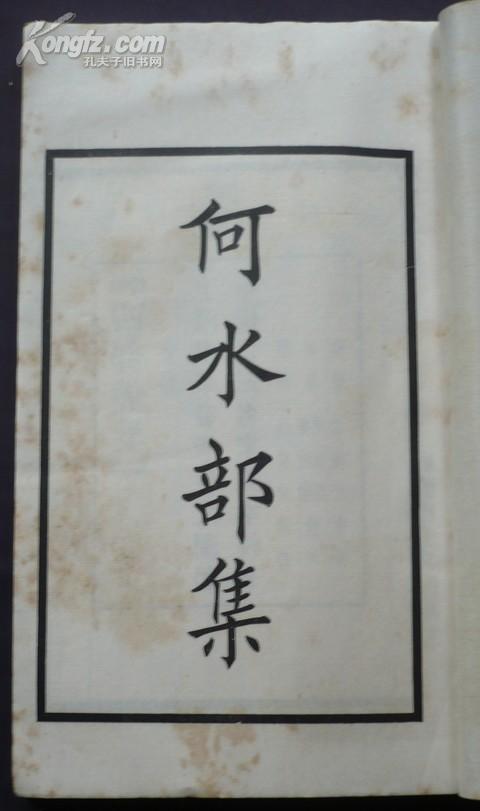 Kongfz.com
孔夫子旧书网
何水部集